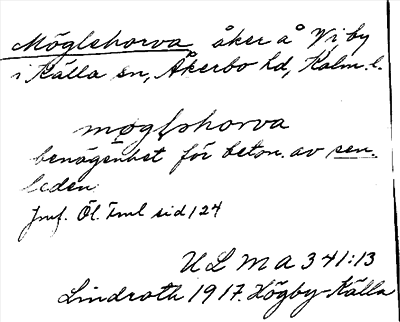 Möglehorva, åker å Vi by
i Källa sn, Åkerbo hd, Kalm. l.
møglshorva
benägenhet för beton. av sen.
leden
Jmf. Öl. Fml sid 124
ULMA 341:13
Lindroth 1917. Högby-Källa